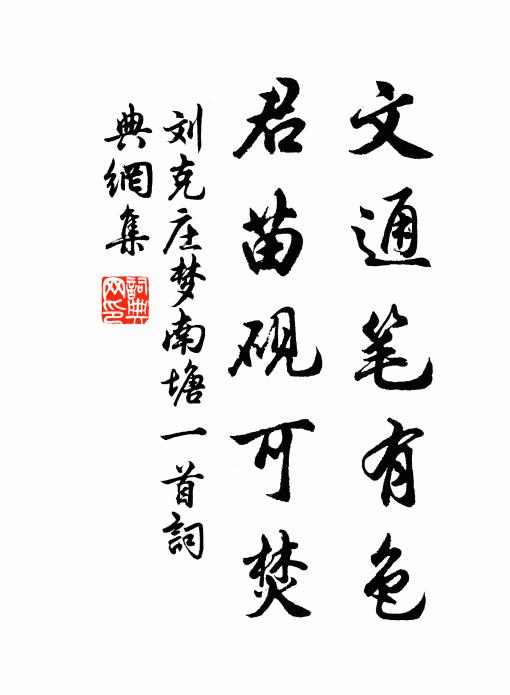 文通笔有色
君苗砚可焚
刘克庄梦南塘一首詞
典網集
詞典网印